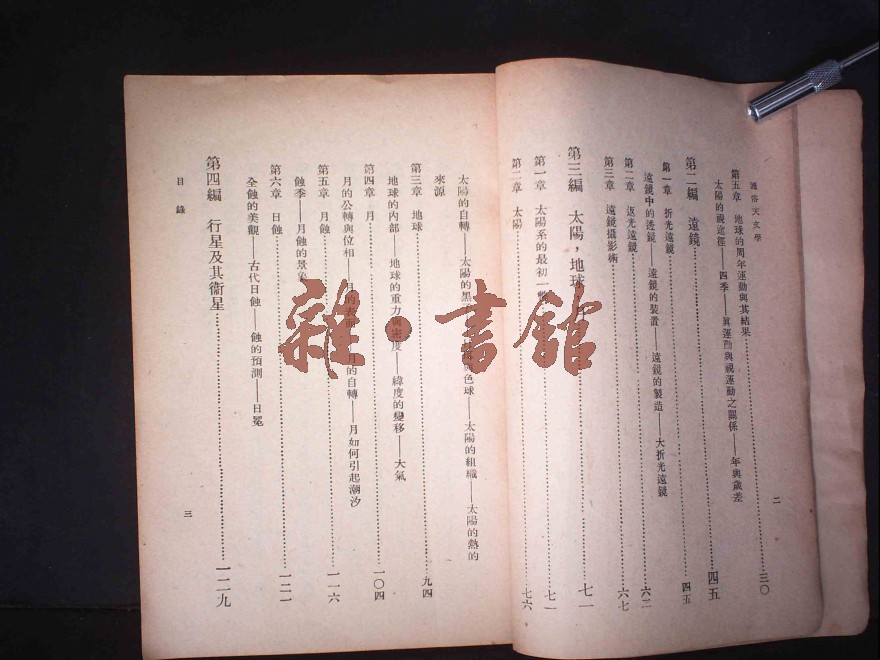 通俗天文學
第五章 地球的周年運動與其結果……三〇
太陽的視途徑——四季——眞運動與視運動之關係——年與歲差
第二編 遠鏡……四五
第一章 折光遠鏡……四五
遠鏡中的透鏡——遠鏡的裝置——遠鏡的製造——大折光遠鏡
第二章 返光遠鏡……六二
第三章 遠鏡攝影術……六七
第三編 太陽，地球，月……七一
第一章 太陽系的最初一瞥……七一
第二章 太陽……七六
二
太陽的自轉——太陽的黑 色球——太陽的組織——太陽的熱的
來源
第三章 地球……九四
地球的內部——地球的重力與密度——緯度的變移——大氣
第四章 月……一〇四
月的公轉與位相——月的表面——月的自轉——月如何引起潮汐
第五章 月蝕……一一六
蝕季——月蝕的景象
第六章 日蝕……一二一
全蝕的美觀——古代日蝕——蝕的預測——日冕
第四編 行星及其衞星……一二九
目錄
三
雜·書館